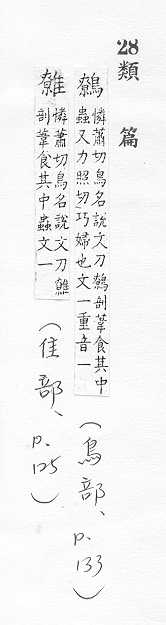 28類篇
鷯憐蕭切鳥名說文刀鷯剖葦食其中
蟲又力照切巧婦也文一重音一
(鳥部、p.133)
憐蕭切鳥名說文刀鷯
剖葦食其中蟲文一
(隹部、p.125)